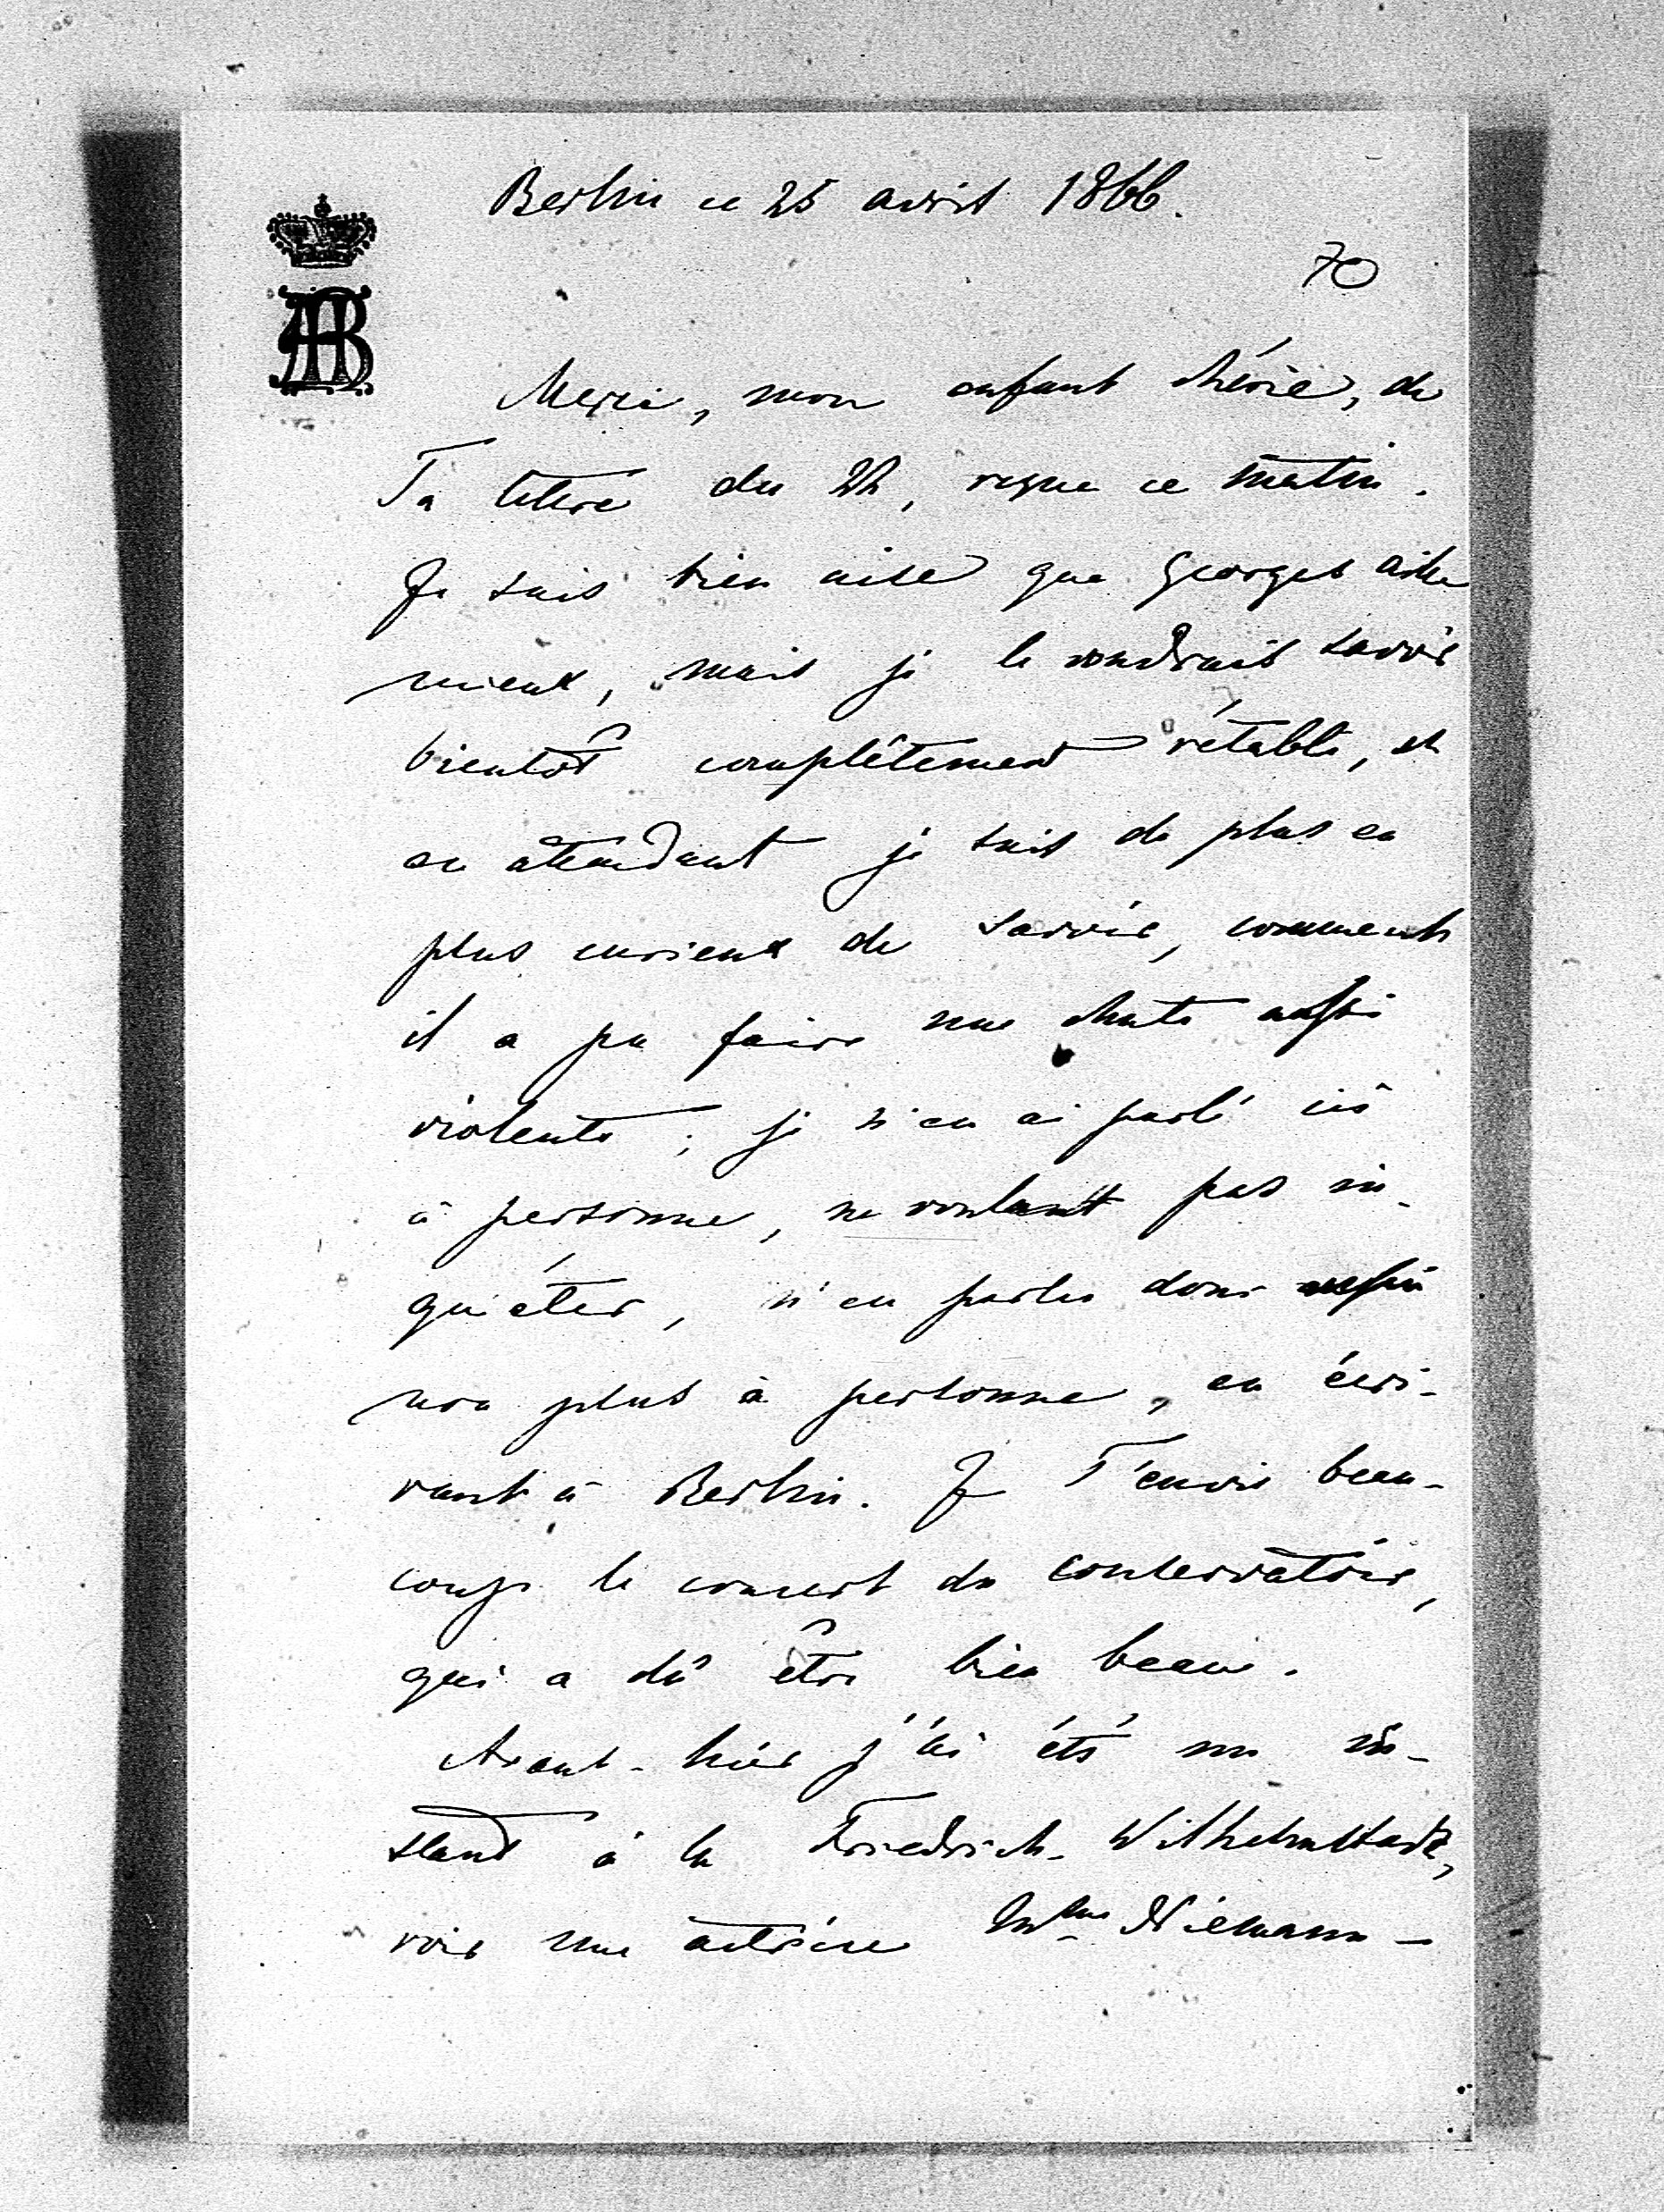 Berlin ce 25 avril 1866.
70
AB
Merci, mon enfant chérie, de
Ta lettre du 22, reçue ce matin.
Je suis bien aise que Georges aille
mieux, mais je le voudrais savoir
bientôt complêtement rétabli, et
en attendant je suis de plus en
plus curieux de savoir, comment
il a pu faire une chute aussi
violente; je n'en ai parlé ici
à personne, ne voulant pas in-
quiéter, n'en parles donc
non plus à personne, en écri-
vant à Berlin. Je T'envie beau-
coup le concert du conservatoire,
qui a dû être bien beau.
Avant-hier j'ai été un in-
stant à la Friedrich-Wilhelmstadt,
voir une actrice Mme Niemann-